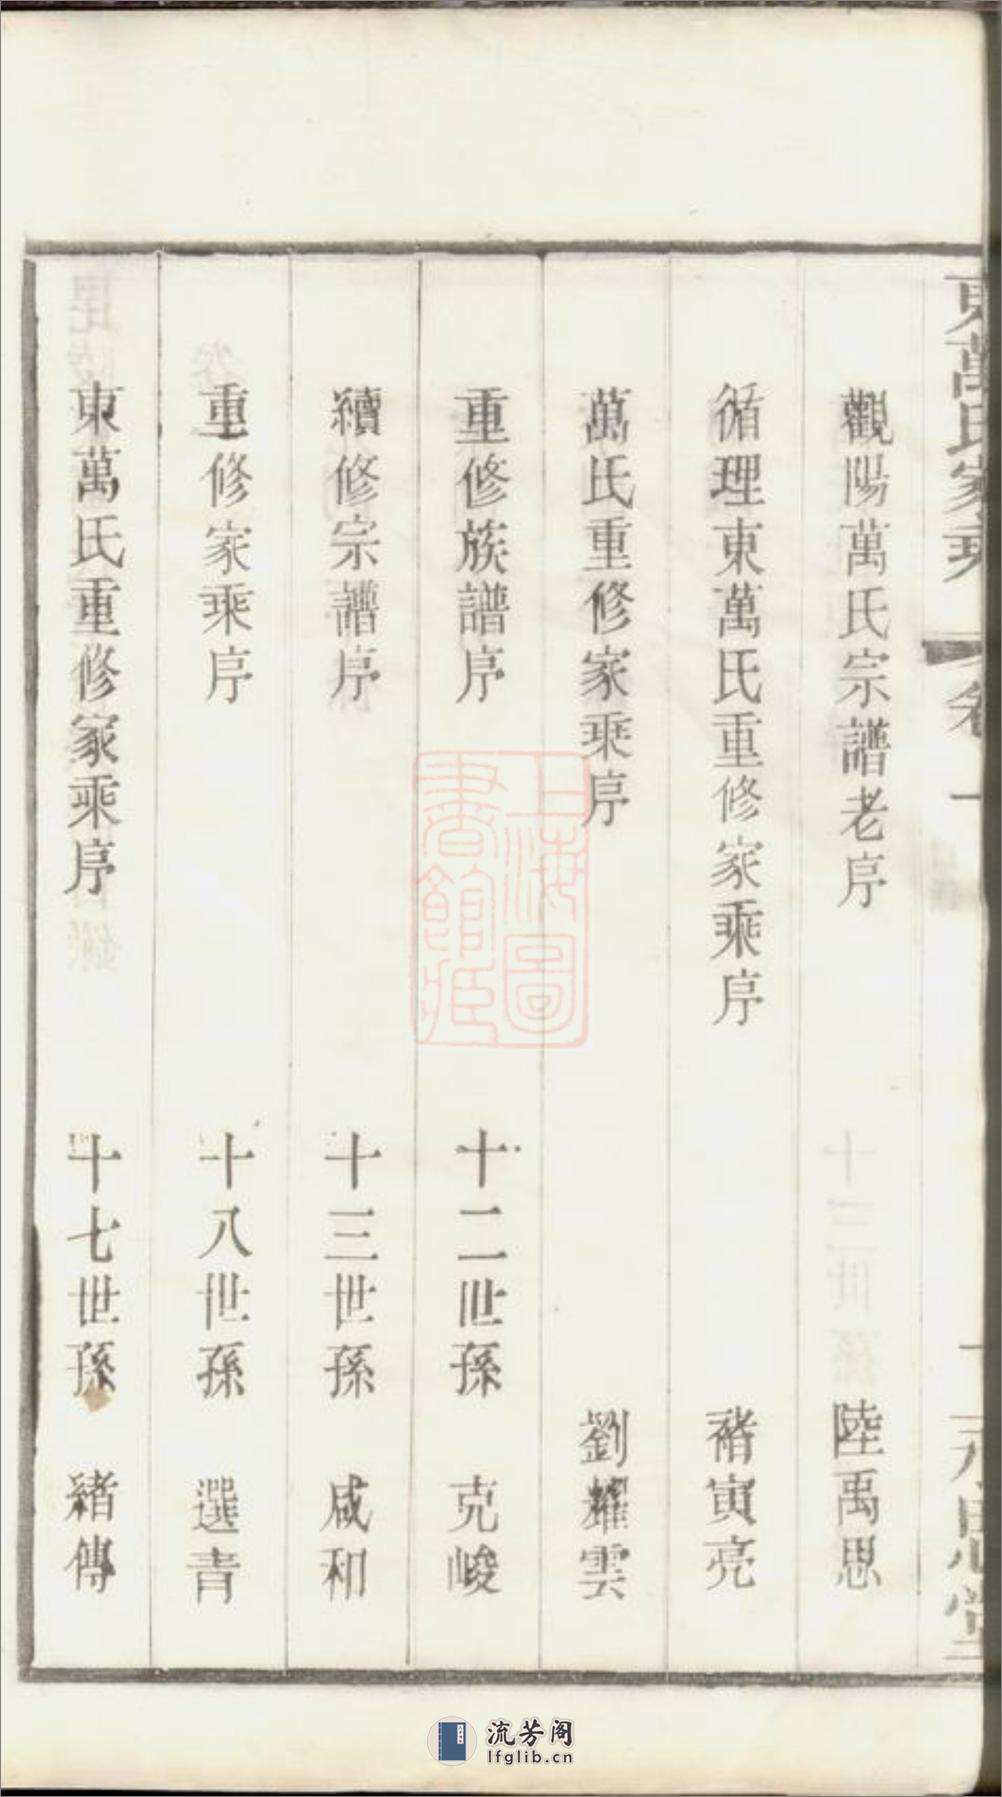 東萬氏家乘 卷一 一 永思堂
觀陽萬氏宗譜老序 陸禹思
循理東萬氏重修家乘序 褚寅亮
萬氏重修家乘序 劉耀雲
重修族譜序 十二世孫 克峻
續修宗譜序 十三世孫 咸和
重修家乘序 十八世孫 選青
東萬氏重修家乘序 十七世孫 緒傳
上海圖書館藏
流芳阁
lfglib.cn